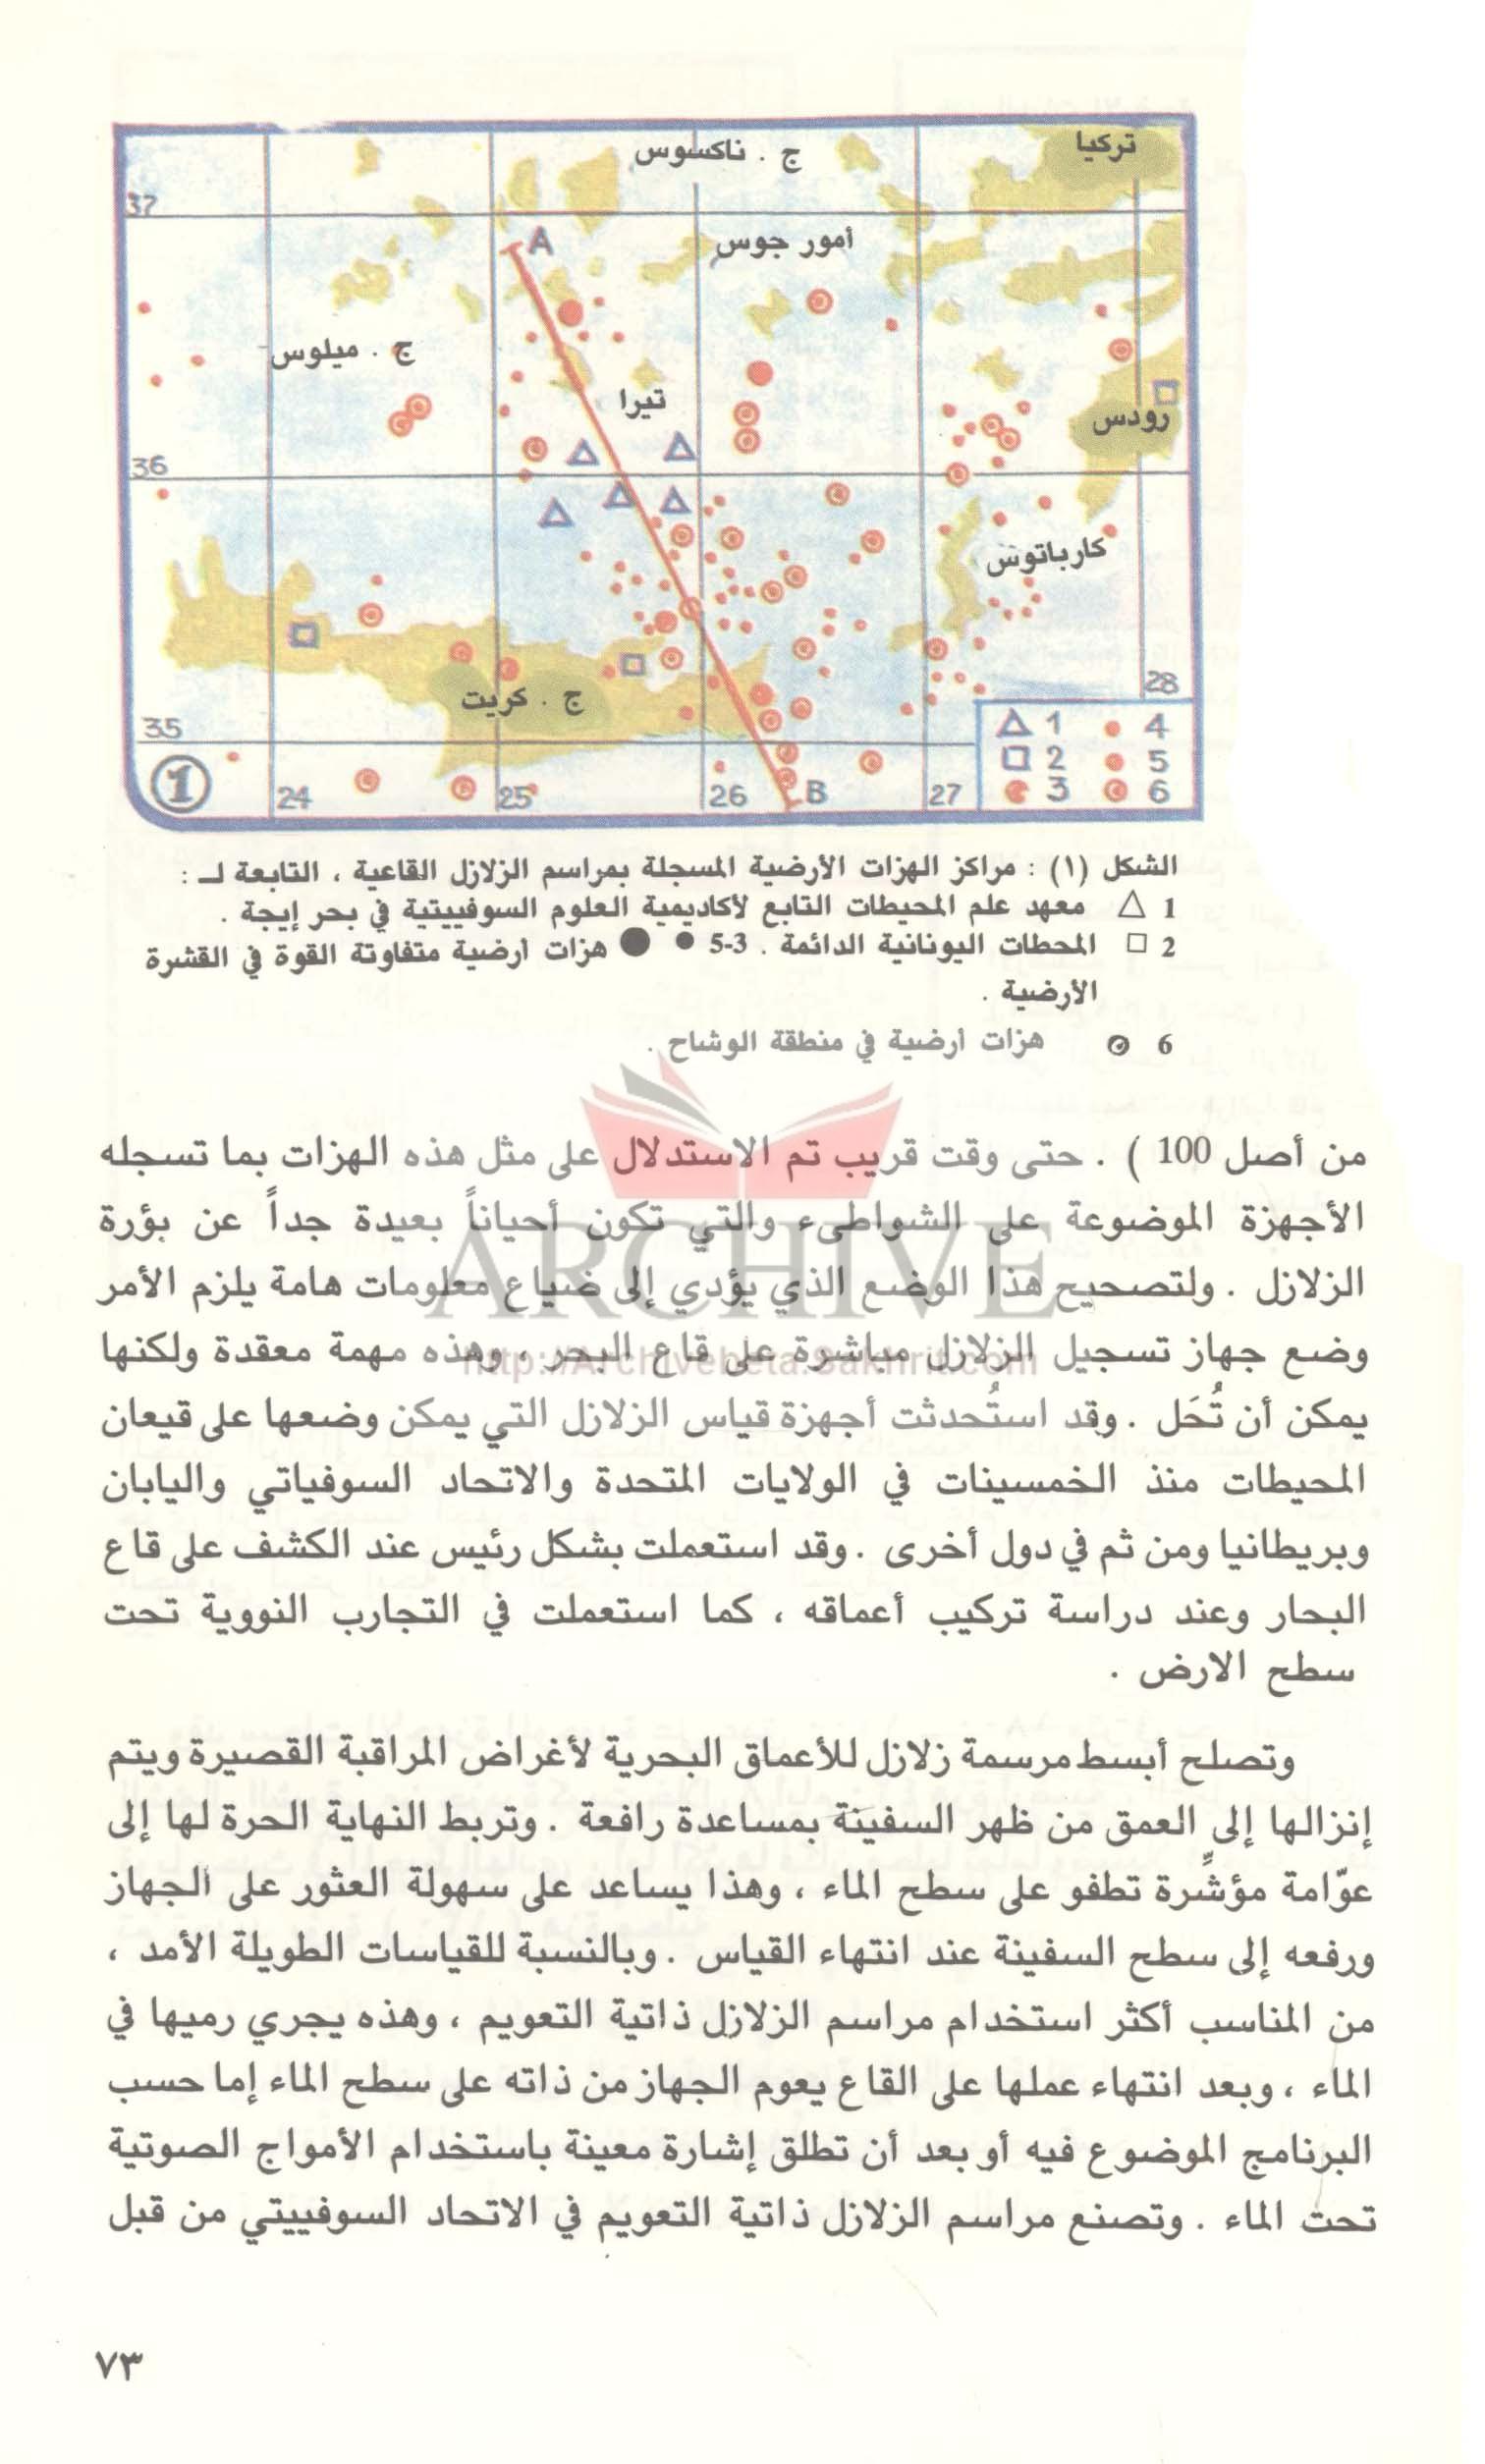 ج . ناكسوس
تركيا
37
A
أمور جوس
ج . ميلوس
تيرا
رودس
36
كارباتوس
ج . كريت
28
35
△ 1 • 4
□ 2 • 5
3 6
1
24 25 26 B 27
الشكل (١) : مراكز الهزات الأرضية المسجلة بمراسم الزلازل القاعية ، التابعة لـ :
1 △ معهد علم المحيطات التابع لأكاديمية العلوم السوفييتية في بحر إيجة .
2 □ المحطات اليونانية الدائمة . 3-5 • ● هزات أرضية متفاوتة القوة في القشرة
الأرضية .
6 هزات أرضية في منطقة الوشاح .
من أصل 100 ) . حتى وقت قريب تم الاستدلال على مثل هذه الهزات بما تسجله
الأجهزة الموضوعة على الشواطىء والتي تكون أحياناً بعيدة جداً عن بؤرة
الزلازل . ولتصحيح هذا الوضع الذي يؤدي إلى ضياع معلومات هامة يلزم الأمر
وضع جهاز تسجيل الزلازل مباشرة على قاع البحر ، وهذه مهمة معقدة ولكنها
يمكن أن تُحَل . وقد استُحدثت أجهزة قياس الزلازل التي يمكن وضعها على قيعان
المحيطات منذ الخمسينات في الولايات المتحدة والاتحاد السوفياتي واليابان
وبريطانيا ومن ثم في دول أخرى . وقد استعملت بشكل رئيس عند الكشف على قاع
البحار وعند دراسة تركيب أعماقه ، كما استعملت في التجارب النووية تحت
سطح الارض .
وتصلح أبسط مرسمة زلازل للأعماق البحرية لأغراض المراقبة القصيرة ويتم
إنزالها إلى العمق من ظهر السفينة بمساعدة رافعة . وتربط النهاية الحرة لها إلى
عوّامة مؤشِّرة تطفو على سطح الماء ، وهذا يساعد على سهولة العثور على الجهاز
ورفعه إلى سطح السفينة عند انتهاء القياس . وبالنسبة للقياسات الطويلة الأمد ،
من المناسب أكثر استخدام مراسم الزلازل ذاتية التعويم ، وهذه يجري رميها في
الماء ، وبعد انتهاء عملها على القاع يعوم الجهاز من ذاته على سطح الماء إما حسب
البرنامج الموضوع فيه أو بعد أن تطلق إشارة معينة باستخدام الأمواج الصوتية
تحت الماء . وتصنع مراسم الزلازل ذاتية التعويم في الاتحاد السوفييتي من قبل
٧٣
ARCHIVE
http://Archivebeta.Sakhrit.com